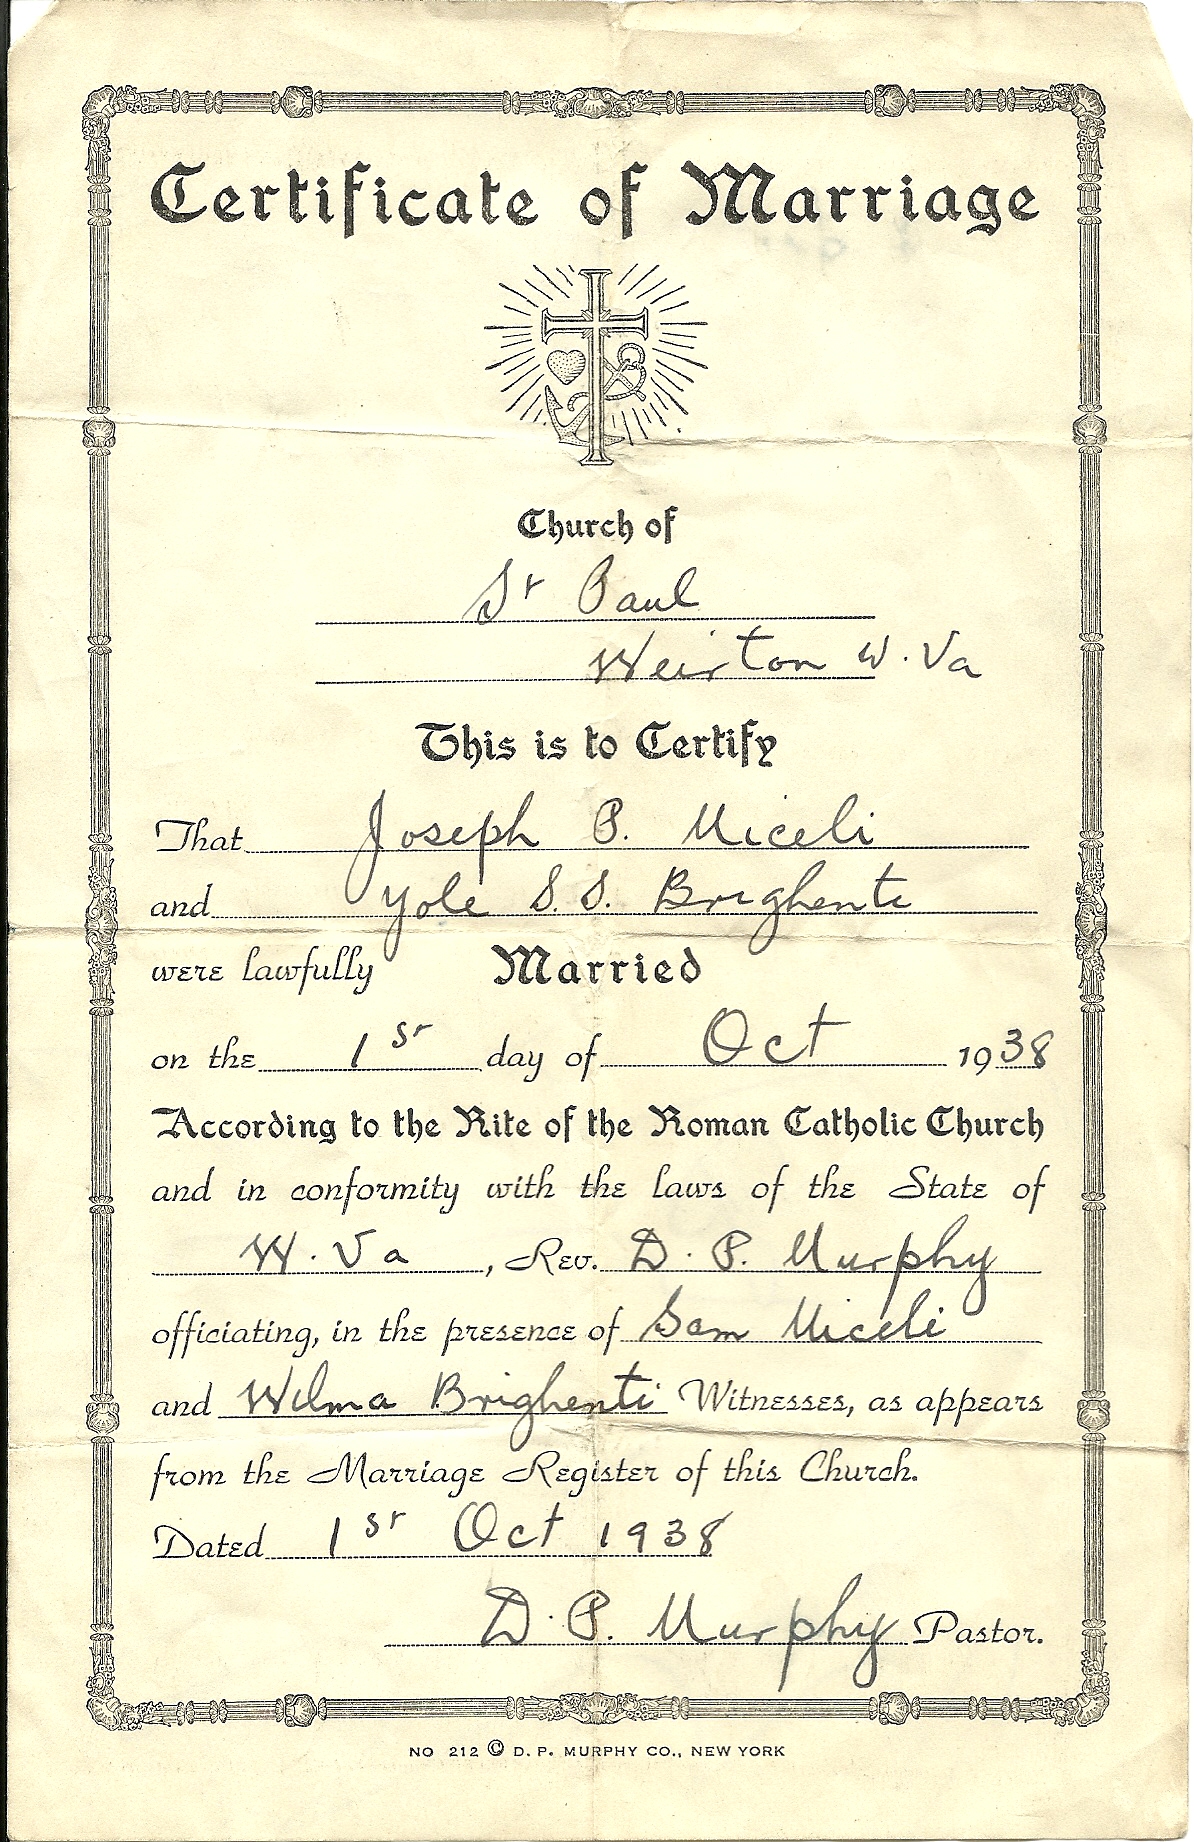 Certificate of Marriage
Church of
St Paul
Weirton W. Va
This is to Certify
That Joseph P. Miceli
and Yole S. S. Brighenti
were lawfully Married
on the 1st day of Oct 1938
According to the Rite of the Roman Catholic Church
and in conformity with the laws of the State of
W. Va, Rev. D. P. Murphy
officiating, in the presence of Sam Miceli
and Wilma Brighenti Witnesses, as appears
from the Marriage Register of this Church.
Dated 1st Oct 1938
D. P. Murphy Pastor.
NO 212 © D. P. MURPHY CO., NEW YORK